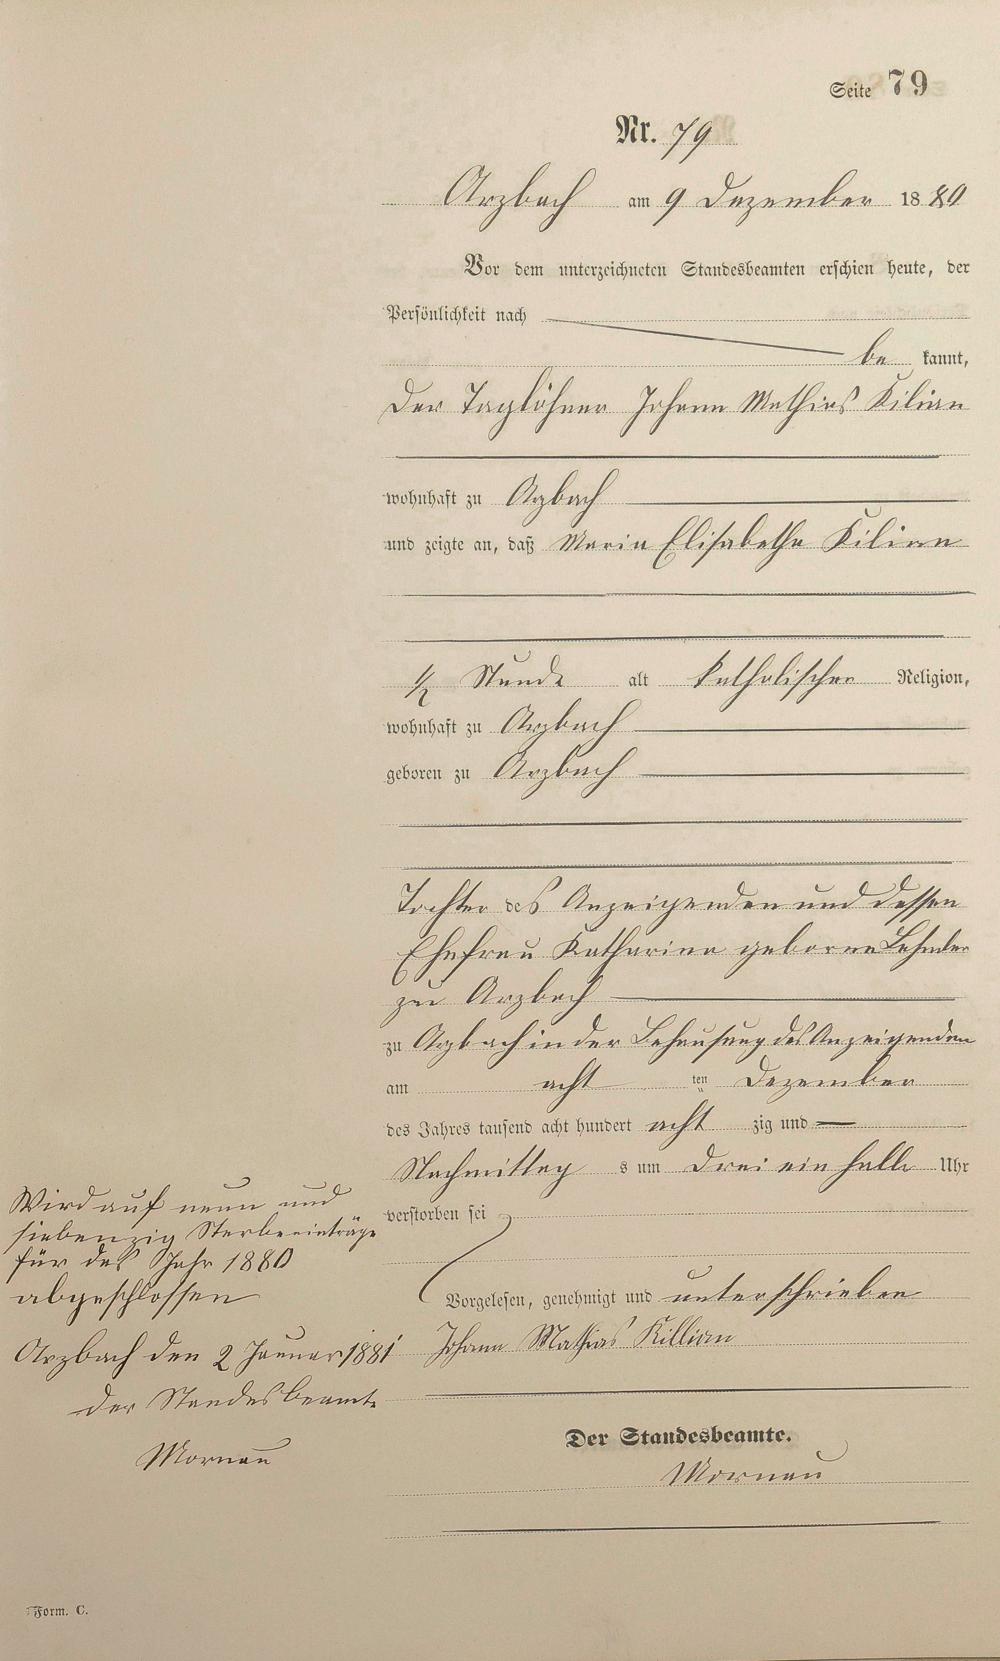 Seite 79
Nr. 79
Arzbach am 9 Dezember 1880
Vor dem unterzeichneten Standesbeamten erschien heute, der
Persönlichkeit nach
be kannt,
der Taglöhner Johann Mathias Kilian
wohnhaft zu Arzbach
und zeigte an, daß Maria Elisabetha Kilian
1/2 Stunde alt katholischer Religion,
wohnhaft zu Arzbach
geboren zu Arzbach
Tochter des Anzeigenden und dessen
Ehefrau Katharina geborne
zu Arzbach
zu Arzbach in der Behausung des Anzeigenden
am acht ten Dezember
des Jahres tausend acht hundert acht zig und
Nachmittag s um drei ein halb Uhr
verstorben sei
Vorgelesen, genehmigt und unterschrieben
Johann Mathias Killian
Der Standesbeamte.
Mornau
Wird auf neun und
siebenzig Sterbeeinträge
für das Jahr 1880
abgeschlossen
Arzbach den 2 Januar 1881
der Standesbeamte
Mornau
Form. C.